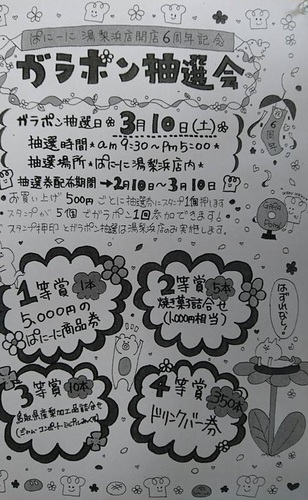 ぱにーに 湯梨浜店開店6周年記念
ガラポン抽選会
ガラポン抽選日 3月10日(土)
抽選時間*am9:30~Pm5:00*
抽選場所*ぱにーに湯梨浜店内*
抽選券配布期間 →2月10日~3月10日
お買い上げ500円ごとに抽選券にスタンプ1個押します
スタンプが5個でガラポン1回参加できます!
スタンプ押印とガラポン抽選は湯梨浜店のみ実施します。
6周年
1等賞 1本
5,000円の
ぱにーに商品券
2等賞 5本
焼き菓子詰合せ
(1,000円相当)
はずれなし!
3等賞 10本
鳥取県産梨加工品詰合せ
4等賞 350本
ドリンクバー券